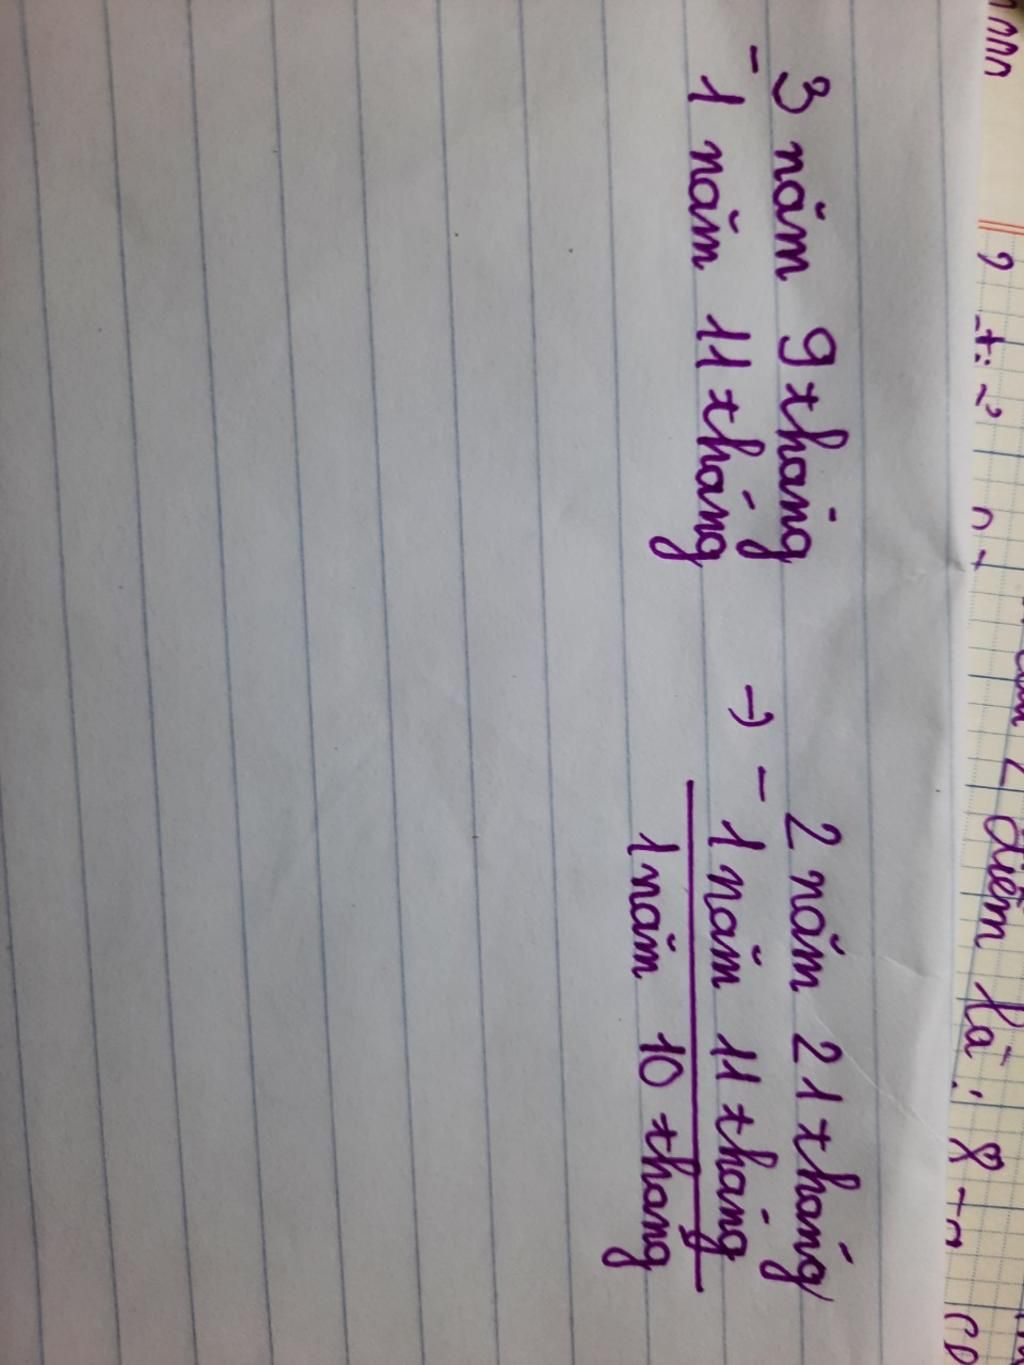 3 năm 9 tháng
- 1 năm 11 tháng
→
2 năm 21 tháng
- 1 năm 11 tháng
1 năm 10 thang
điểm là: